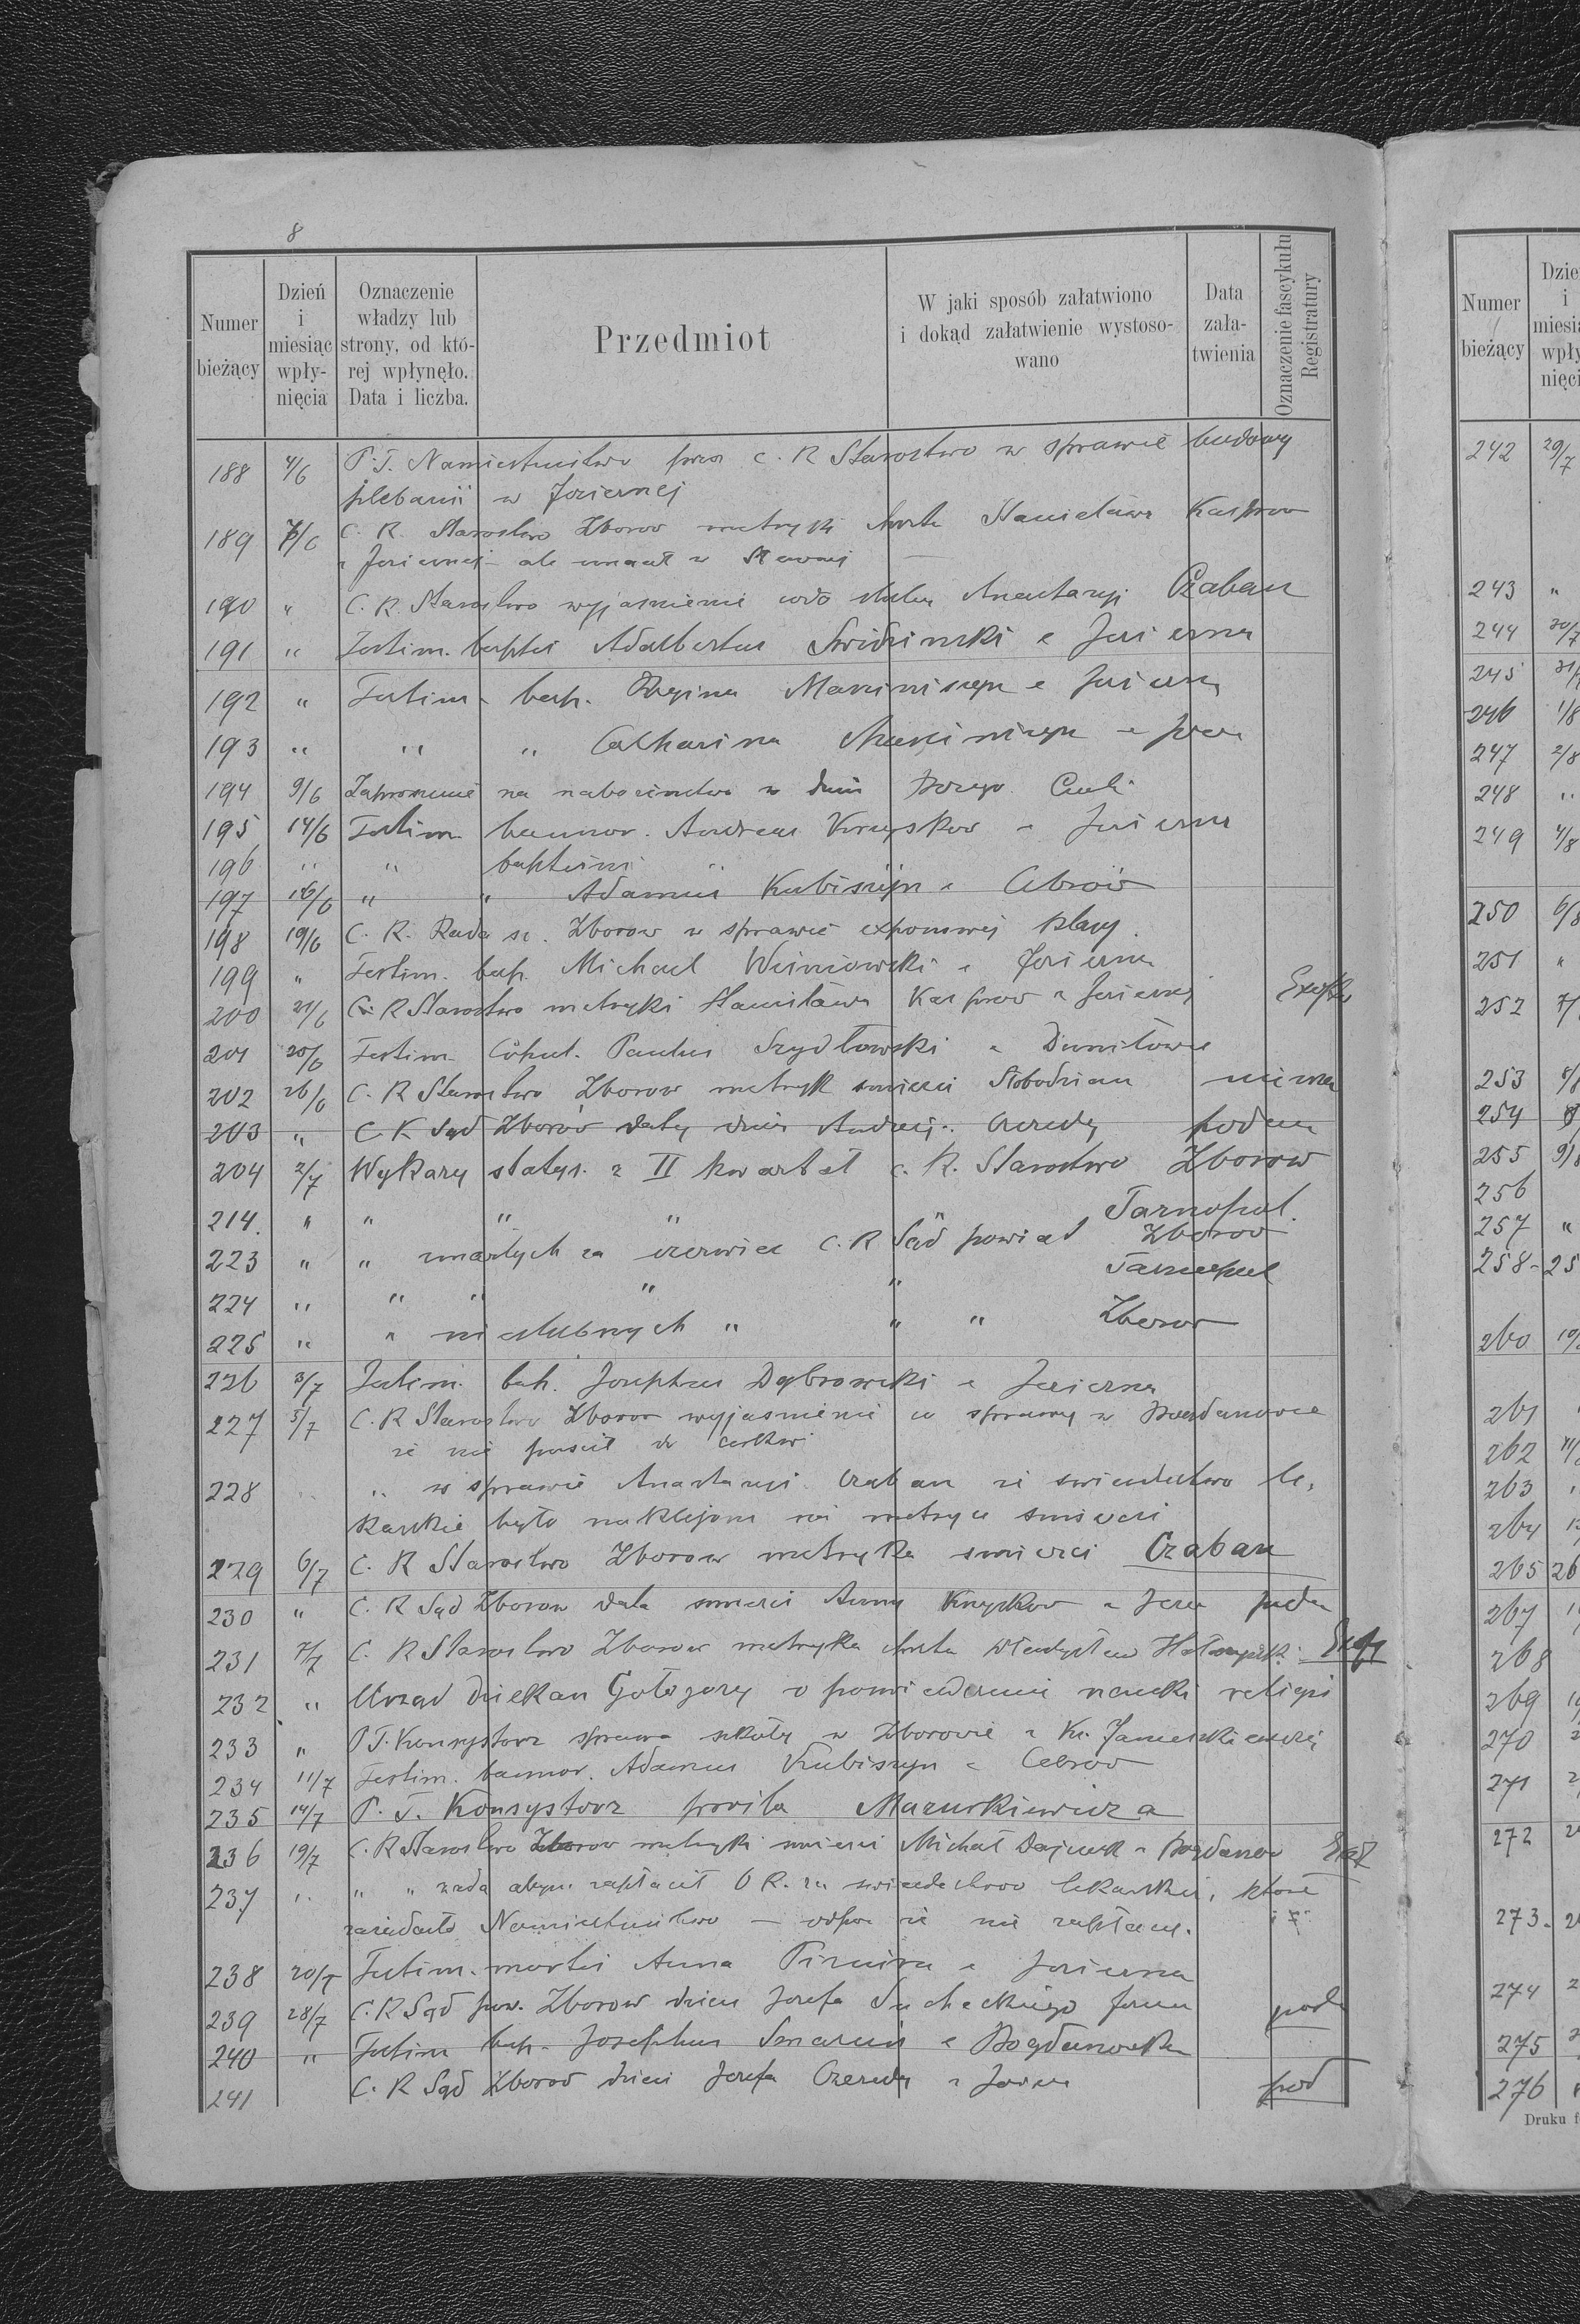 8
Numer bieżący
Dzień i miesiąc wpły- nięcia
Oznaczenie władzy lub strony, od któ- rej wpłynęło. Data i liczba.
Przedmiot
W jaki sposób załatwiono i dokąd załatwienie wystoso- wano
Data zała- twienia
Oznaczenie fascykułu Registratury
188 4/6 P.T. Namiestnictwo przez C. K Starostwo w sprawie budowy
plebanii w Jeziernej
189 7/6 C. K. Starostwo Zborow metryki chrztu Stanisława Kasprow
z Jeziernej – ale umarł w
190 " C. K. Starostwo wyjasnienie codo slubu Anastazyi Czaban
191 " Testim. baptis Adalbertus Swidzinski e Jezierna
192 " Testim. bap. Regina Marciniszyn e Jezierna
193 " " " Catharina Marciniszyn e
194 9/6 Zaproszenie na nabozenstwo w dniu Bozego Ciała
195 14/6 Testim. bannor. Andreas Knyszkow e Jezierna
196 " " baptismi "
197 16/6 " " Adamus Kubiszyn e Cebrów
198 19/6 C. K. Rada sz. Zborow w sprawie
199 " Testim. bap. Michael Wisniowski e Jezierna
200 21/6 C. K Starostwo metryki Stanisława Kasprow z Jeziernej
201 25/6 Testim. Copul. Paulus Szydłowski e Daniłowce
202 26/6 C. K Starostwo Zborow metryk smierci Słobodzian niema
203 " C K Sąd Zborów daty dzieci Andrzeja Czeredy podana
204 2/7 Wykazy statys. z II kwartał c. K. Starostwo Zborow
214. " " " " " Tarnopol.
223 " " zmarłych za czerwiec C. K Sąd powiat Zborov
224 " " " " " Tarnopol
225 " " nieslubnych " " " Zborow
226 3/7 Testim. bap. Josephus Dąbrowski e Jezierna
227 5/7 C. K Starostwo Zborow wyjasnienie co sprawy w Bogdanowce
ze nie puscił do cerkwi
228 " " w sprawie Anastazyi Czaban ze swiadectwo le-
karskie było naklejone na metryce smierci
229 6/7 C. K Starostwo Zborow metryka smierci Czaban
230 " C. K Sąd Zborow data smierci Anny Knyszkow z
231 7/7 C. K Starostwo Zborow metryka chrztu Władysław
232 " Urząd dziekan Gołogory o nauki religii
233 " P.T. Konsystorz sprawa szkoły w Zborowie z Ks.
234 11/7 Testim. bannor. Adamus Kubiszyn e Cebrow
235 14/7 P. T. Konsystorz Mazurkiewicza
236 19/7 C. K Starostwo Zborow metryki smierci Michał z Bogdanow
237 " " " zada abym zapłacił 6 K. za swiadectwo lekarskie, które
zażądało Namiestnictwo – odpow ze nie zapłacę.
238 20/7 Testim. mortis Anna e Jezierna
239 28/7 C. K Sąd pow. Zborow dzieci Jozefa Sucheckiego
240 " Testim bap. Josephus e Bogdanowka
241 C. K Sąd Zborow dzieci Jozefa Czeredy z pod
Numer bieżący
242 29/7
243 "
244 30/7
245
246 1/8
247 2/8
248 "
249 4/8
250 6/8
251 "
252
253
254
255
256
257 "
258-25
260
261
262
263
264
265 26
267
268
269
270
271
272
273.
274
275
276